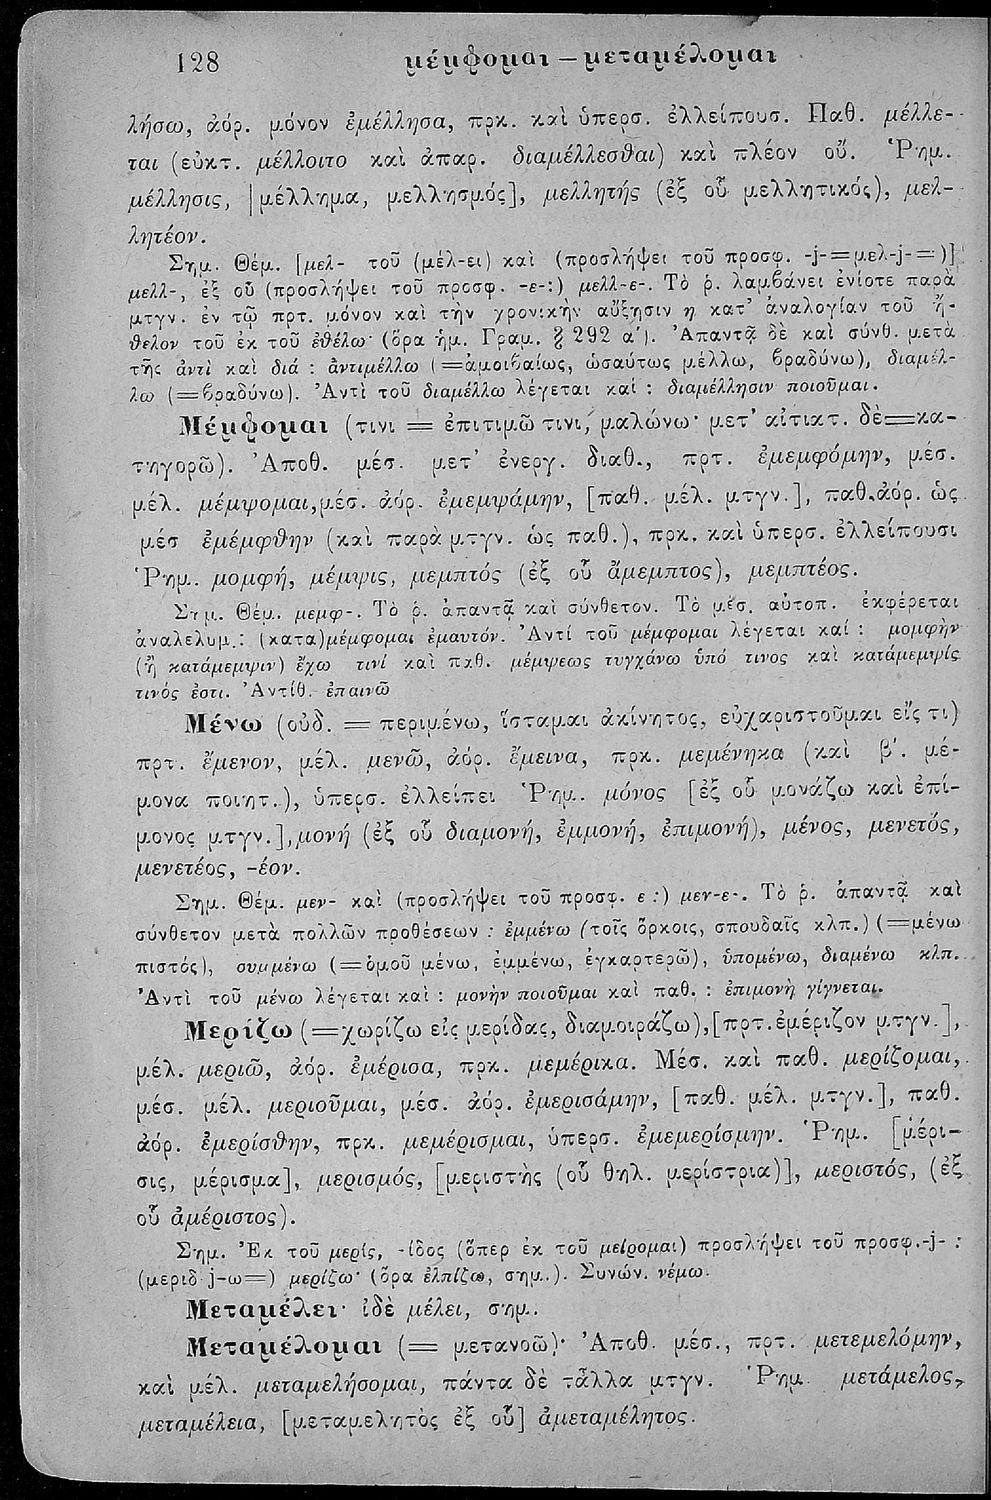 128 μέμφομαι — μεταμέλομαι
λήσω, ἀόρ. μόνον ἐμέλλησα, πρκ. καὶ ὑπερσ. ἐλλείπουσ. Παθ. μέλλε-
ται (εὐκτ. μέλλοιτο καὶ ἀπαρ. διαμέλλεσθαι) καὶ πλέον οὔ. Ῥημ.
μέλλησις, [μέλλημα, μελλησμός], μελλητής (ἐξ οὗ μελλητικός), μελ-
λητέον.
Σημ. Θέμ. [μελ- τοῦ (μέλ-ει) καὶ (προσλήψει τοῦ προσφ. -j-=μελ-j-=)]
μελλ-, ἐξ οὗ (προσλήψει τοῦ προσφ. -ε-:) μελλ-ε-. Τὸ ῥ. λαμβάνει ἐνίοτε παρὰ
μτγν. ἐν τῷ πρτ. μόνον καὶ τὴν χρονικὴν αὔξησιν η κατ' ἀναλογίαν τοῦ ἤ-
θελον τοῦ ἐκ τοῦ ἐθέλω· (ὅρα ἡμ. Γραμ. § 292 α'). Ἀπαντᾷ δὲ καὶ σύνθ. μετὰ
τῆς ἀντὶ καὶ διά : ἀντιμέλλω (=ἀμοιβαίως, ὡσαύτως μέλλω, βραδύνω), διαμέλ-
λω (=βραδύνω). Ἀντὶ τοῦ διαμέλλω λέγεται καί : διαμέλλησιν ποιοῦμαι.
Μέμφομαι (τινι = ἐπιτιμῶ τινι, μαλώνω· μετ' αἰτιατ. δὲ=κα-
τηγορῶ). Ἀποθ. μέσ. μετ' ἐνεργ. διαθ., πρτ. ἐμεμφόμην, μέσ.
μέλ. μέμψομαι, μέσ. ἀόρ. ἐμεμψάμην, [παθ. μέλ. μτγν.], παθ. ἀόρ. ὡς
μέσ ἐμέμφθην (καὶ παρὰ μτγν. ὡς παθ.), πρκ. καὶ ὑπερσ. ἐλλείπουσι
Ῥημ. μομφή, μέμψις, μεμπτός (ἐξ οὗ ἄμεμπτος), μεμπτέος.
Σημ. Θέμ. μεμφ-. Τὸ ῥ. ἀπαντᾷ καὶ σύνθετον. Τὸ μέσ. αὐτοπ. ἐκφέρεται
ἀναλελυμ.: (κατα)μέμφομαι ἐμαυτόν. Ἀντί τοῦ μέμφομαι λέγεται καί : μομφὴν
(ἢ κατάμεμψιν) ἔχω τινί καὶ παθ. μέμψεως τυγχάνω ὑπό τινος καὶ κατάμεμψίς
τινός ἐστι. Ἀντίθ. ἐπαινῶ
Μένω (οὐδ. = περιμένω, ἵσταμαι ἀκίνητος, εὐχαριστοῦμαι εἴς τι)
πρτ. ἔμενον, μέλ. μενῶ, ἀόρ. ἔμεινα, πρκ. μεμένηκα (καὶ β'. μέ-
μονα ποιητ.), ὑπερσ. ἐλλείπει Ῥημ. μόνος [ἐξ οὗ μονάζω καὶ ἐπί-
μονος μτγν.], μονή (ἐξ οὗ διαμονή, ἐμμονή, ἐπιμονή), μένος, μενετός,
μενετέος, -έον.
Σημ. Θέμ. μεν- καὶ (προσλήψει τοῦ προσφ. ε :) μεν-ε-. Τὸ ῥ. ἀπαντᾷ καὶ
σύνθετον μετὰ πολλῶν προθέσεων : ἐμμένω (τοῖς ὅρκοις, σπονδαῖς κλπ.) (=μένω
πιστός), συμμένω (=ὁμοῦ μένω, ἐμμένω, ἐγκαρτερῶ), ὑπομένω, διαμένω κλπ.
Ἀντὶ τοῦ μένω λέγεται καὶ : μονὴν ποιοῦμαι καὶ παθ. : ἐπιμονὴ γίγνεται.
Μερίζω (=χωρίζω εἰς μερίδας, διαμοιράζω),[πρτ. ἐμέριζον μτγν.],
μέλ. μεριῶ, ἀόρ. ἐμέρισα, πρκ. μεμέρικα. Μέσ. καὶ παθ. μερίζομαι,
μέσ. μέλ. μεριοῦμαι, μέσ. ἀόρ. ἐμερισάμην, [παθ. μέλ. μτγν.], παθ.
ἀόρ. ἐμερίσθην, πρκ. μεμέρισμαι, ὑπερσ. ἐμεμερίσμην. Ῥημ. [μέρι-
σις, μέρισμα], μερισμός, [μεριστὴς (οὗ θηλ. μερίστρια)], μεριστός, (ἐξ
οὗ ἀμέριστος).
Σημ. Ἐκ τοῦ μερίς, -ίδος (ὅπερ ἐκ τοῦ μείρομαι) προσλήψει τοῦ προσφ.-j- :
(μεριδ j-ω=) μερίζω· (ὅρα ἐλπίζω, σημ.). Συνών. νέμω.
Μεταμέλει· ἰδὲ μέλει, σημ.
Μεταμέλομαι (= μετανοῶ)· Ἀποθ. μέσ., πρτ. μετεμελόμην,
καὶ μέλ. μεταμελήσομαι, πάντα δὲ τἆλλα μτγν. Ῥημ. μετάμελος,
μεταμέλεια, [μεταμελητὸς ἐξ οὗ] ἀμεταμέλητος.